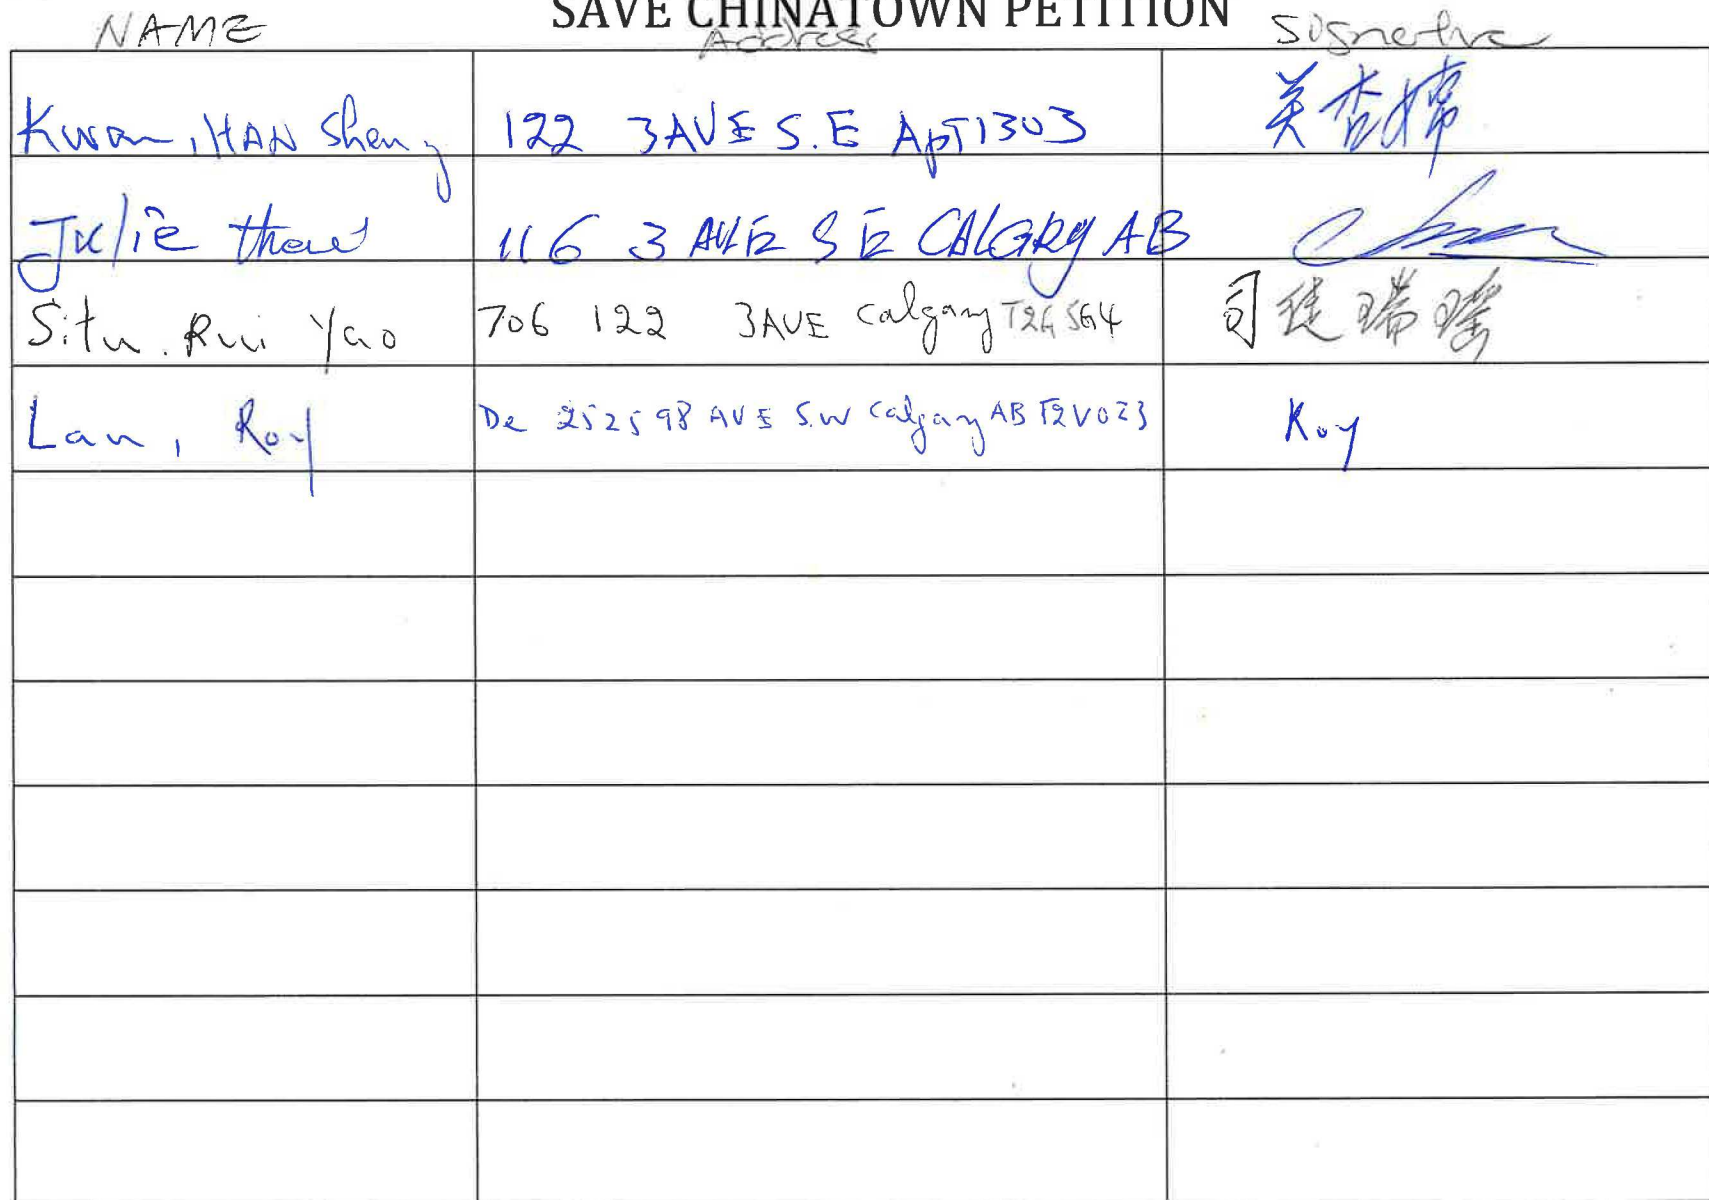 SAVE CHINATOWN PETITION
NAME Address Signature
Kwan, HAN Sheng 122 3AVE S.E ApT1303
Julie 116 3 AVE S E CALGRY AB
Situ. Rui Yao 706 122 3AVE Calgary T2G 5G4 司徒瑞瑶
Lan, Roy De 2525 98 AVE S.W Calgary AB Roy